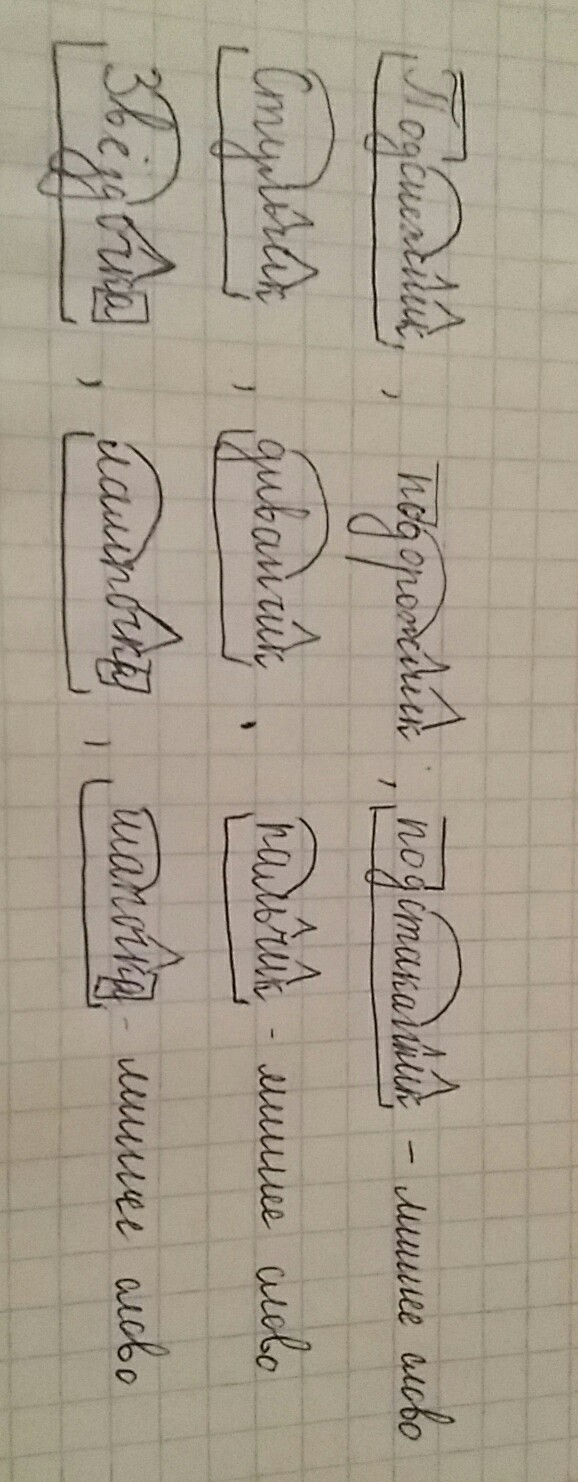 Подснежник, подорожник, подстаканник - лишнее слово
Стульчик, диванчик, пальчик - лишнее слово
Звёздочка, лампочка, шапочка - лишнее слово